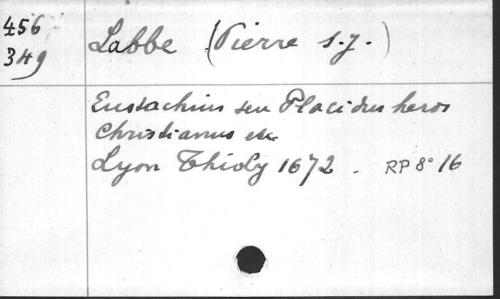 456
349
Labbe (Pierre s.j.)
Eustachius seu Placidus heros
Christianus etc
Lyon Thioly 1672. RP 8° 16